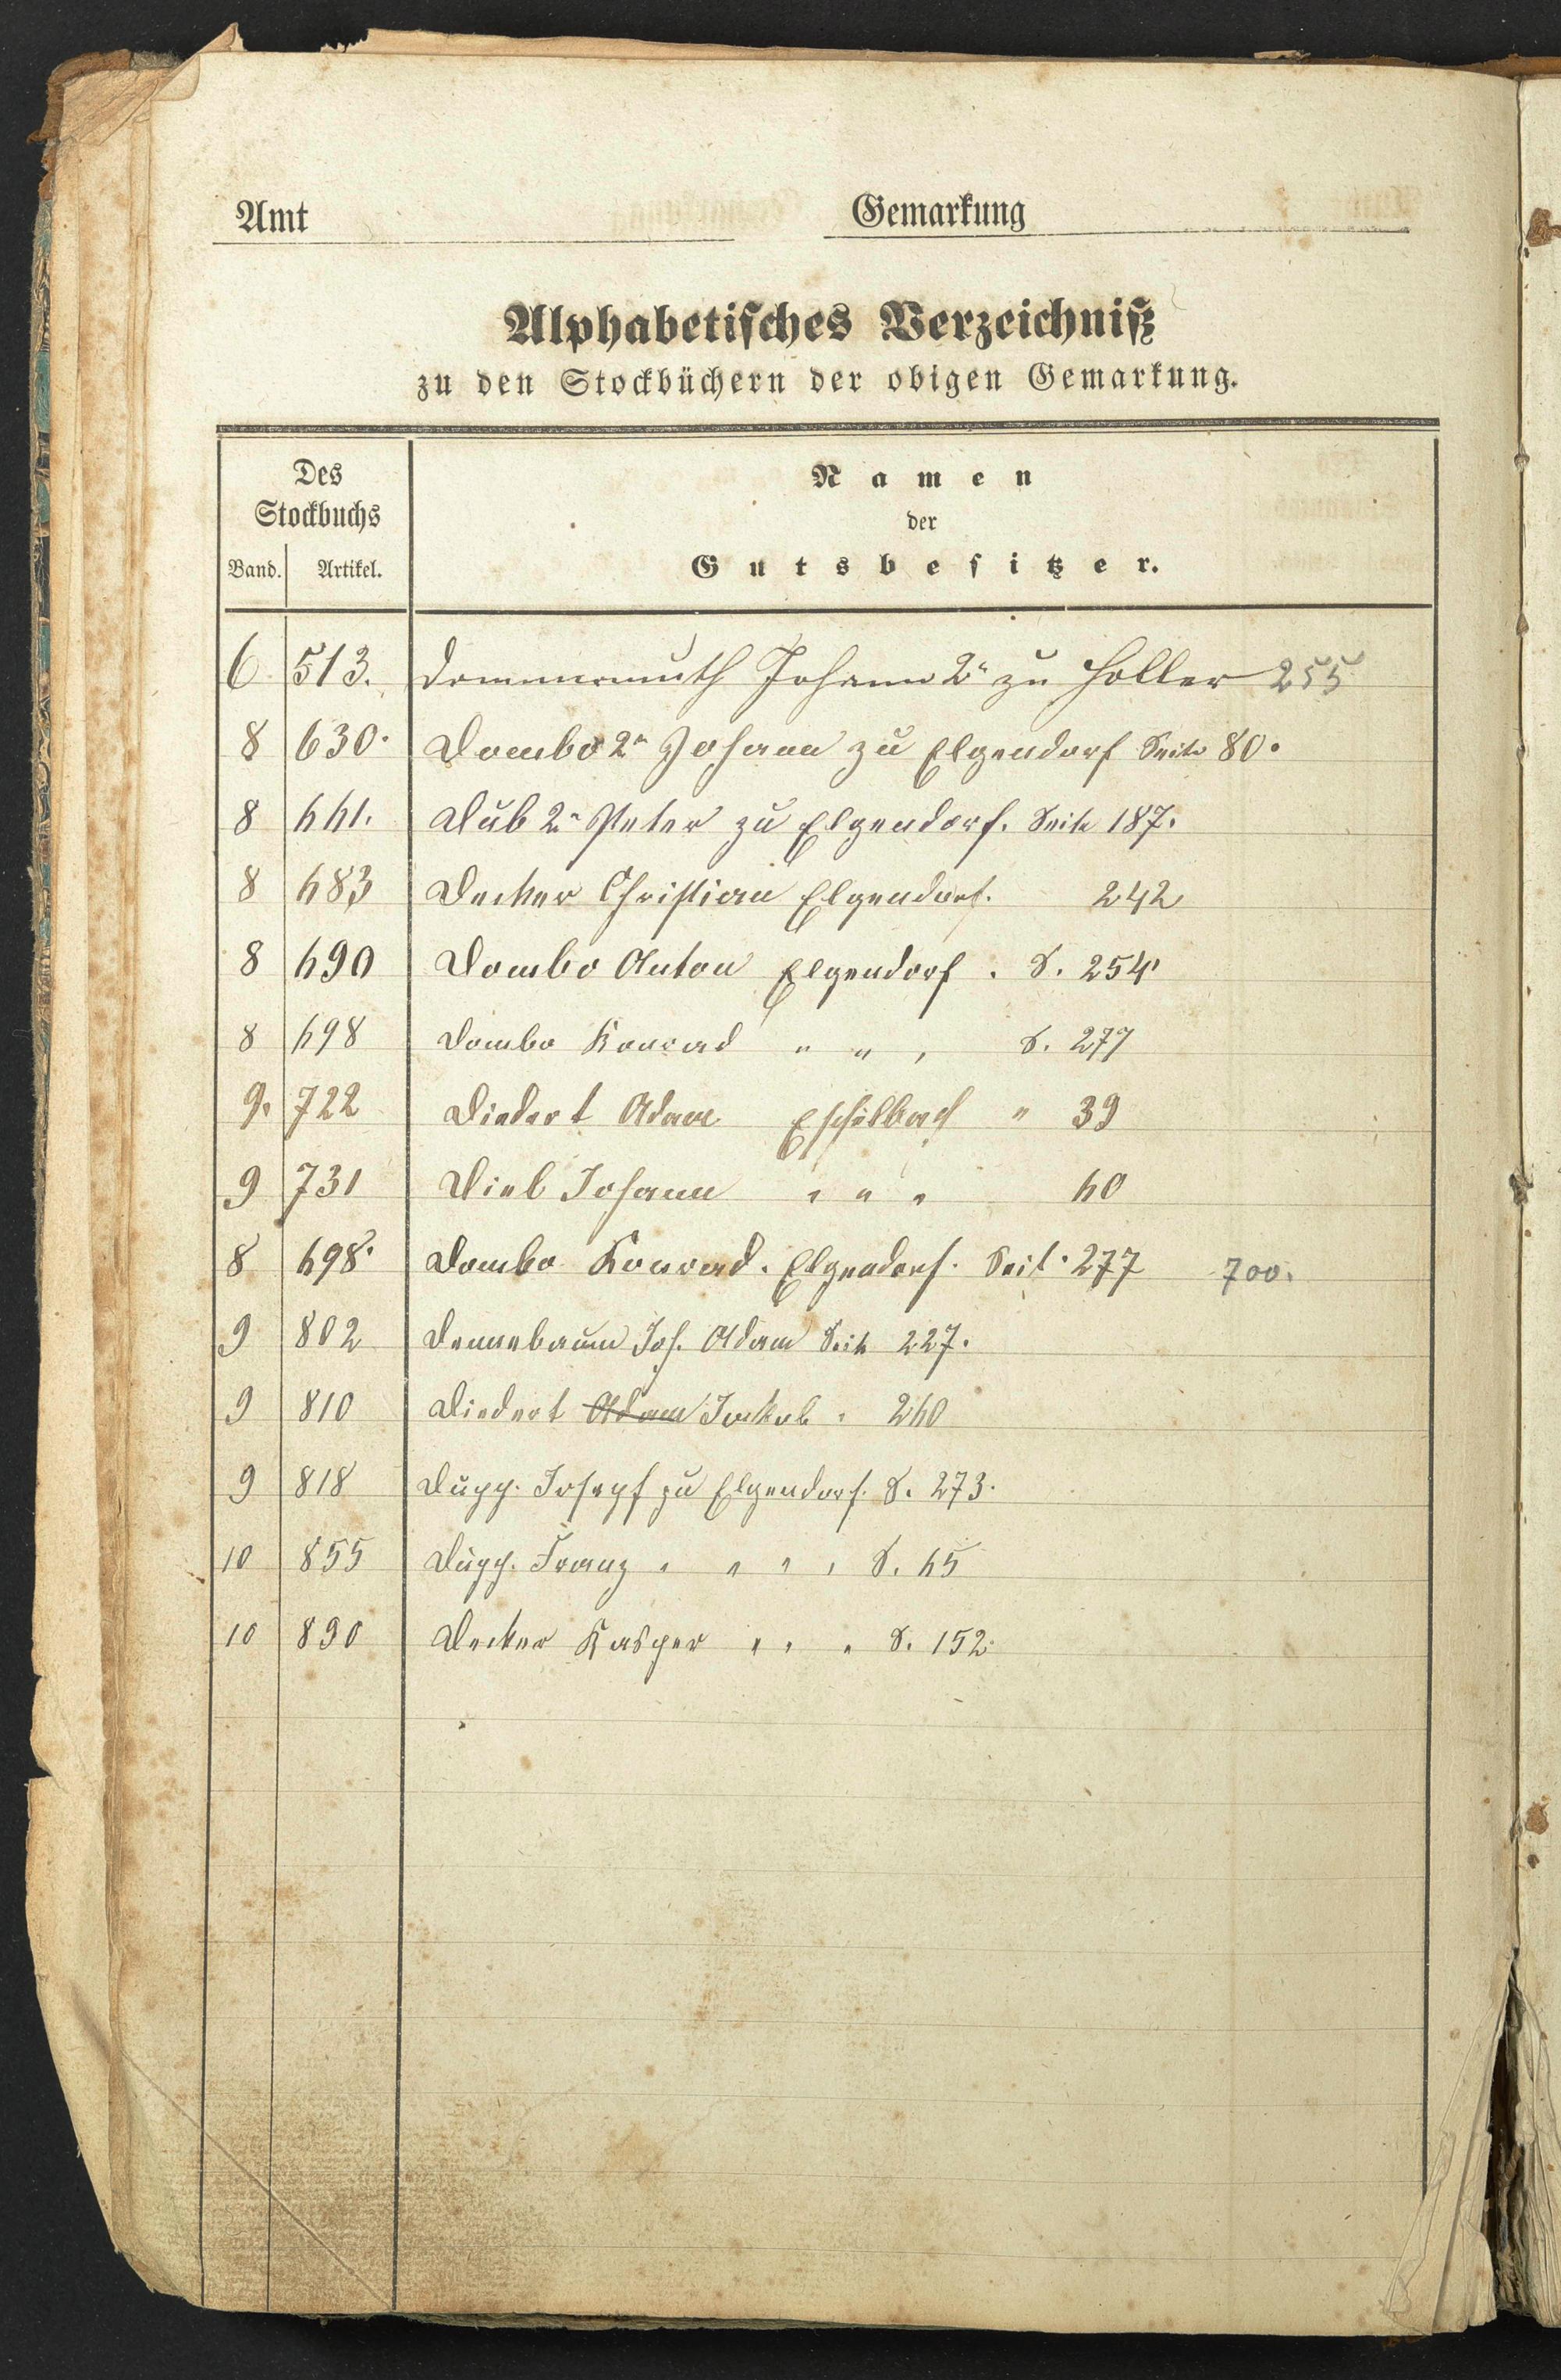 Amt Gemarkung
Alphabetisches Verzeichniß
zu den Stockbüchern der obigen Gemarkung.
Des
Stockbuchs
Band. Artikel.
Namen
der
Gutsbesitzer.
6 513. Dommermuth Johann 2r zu Holler 255
8 630. Dombo 2r Johann zu Elgendorf Seite 80.
8 661. Dub 2r Peter zu Elgendorf. Seite 187.
8 683 Decker Christian Elgendorf. 242
8 690 Dombo Anton Elgendorf. S. 254
8 698 Dombo Konrad " " " S. 277
9. 722 Diedert Adam Eschelbach " 39
9 731 Diel Johann " " " 60
8 698. Dombo Konrad. Elgendorf. Seit. 277 700.
9 802 Dennebaum Joh. Adam Seite 227.
9 810 Diedert Adam Jakob " 260
9 818 Dupp. Joseph zu Elgendorf. S. 273.
10 855 Dupp. Franz " " " " S. 65
10 890 Decker Kasper " " " S. 152.